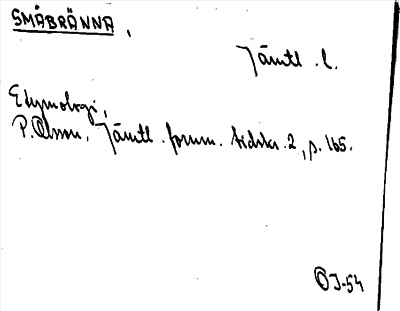 SMÅBRÄNNA,
Jämtl. l.
Etymologi,
P. Olsson, Jämtl. fornm. tidskr. 2, s. 165.
OJ-54